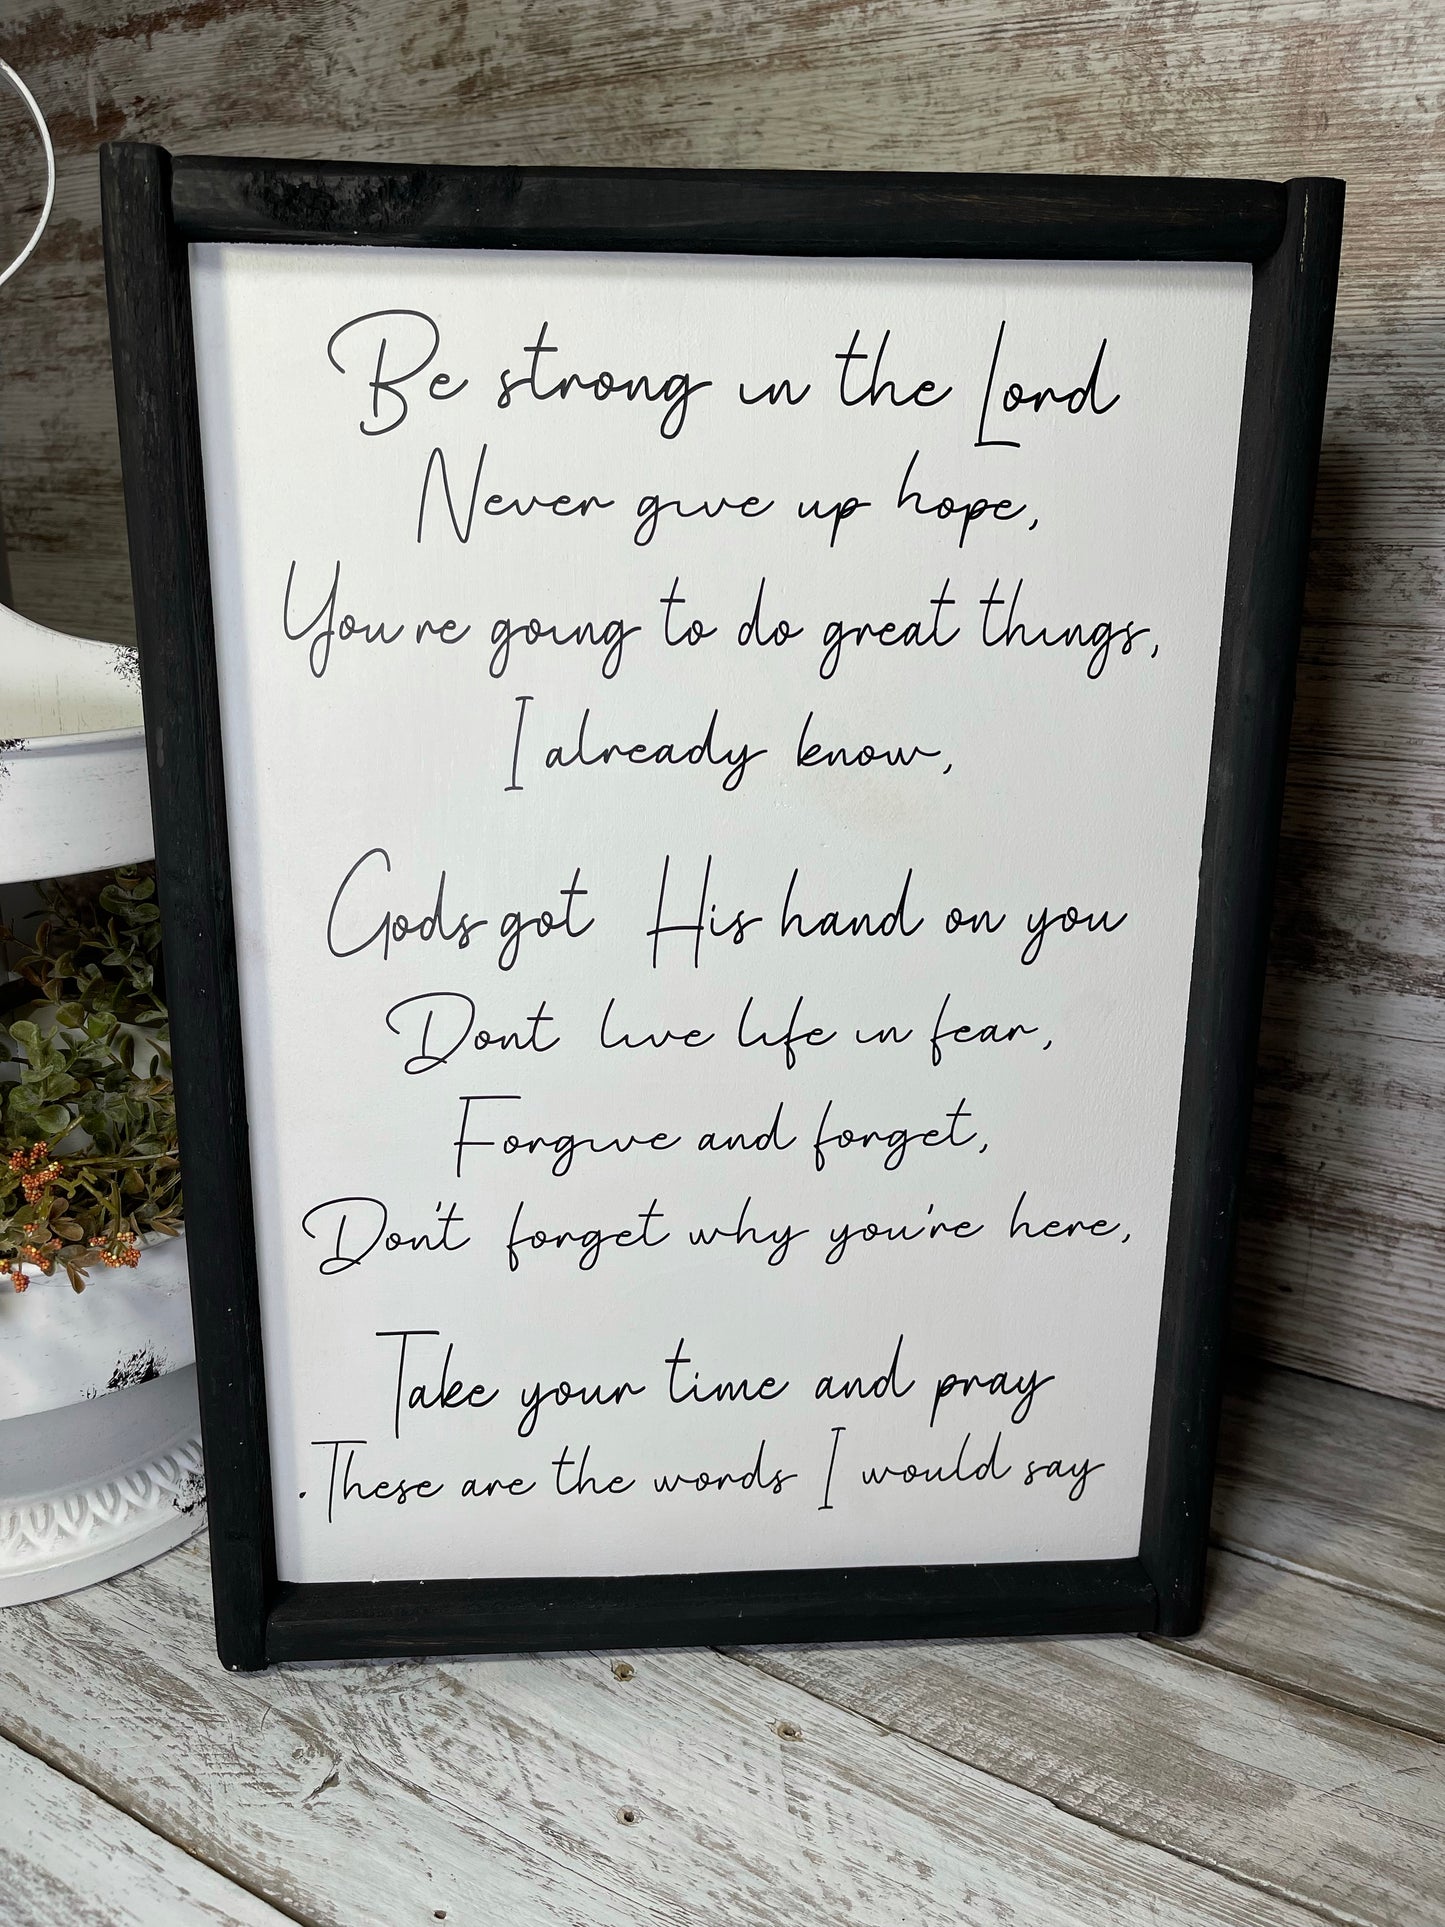 Be strong in the Lord
Never give up hope,
You're going to do great things,
I already know,
Gods got His hand on you
Dont live life in fear,
Forgive and forget,
Don't forget why you're here,
Take your time and pray
.These are the words I would say